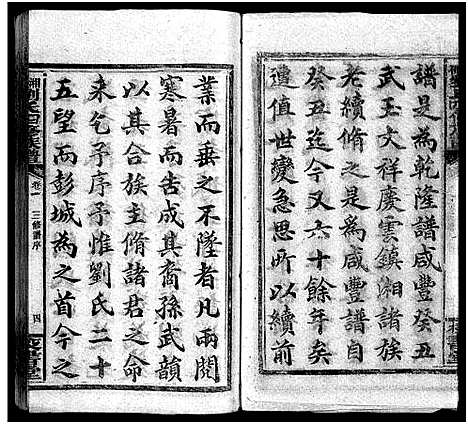 譜是為乾隆譜咸豐癸丑
武玉大祥慶雲鎮湘諸族
老續脩之是為咸豐譜自
癸丑迄今又六十餘年矣
遭值世變急思所以續前
業而垂之不墜者凡兩閱
寒暑而告成其裔孫武韻
以其合族主脩諸君之命
来乞予序予惟劉氏二十
五望而彭城為之首今之
卷一
三修譜序
四